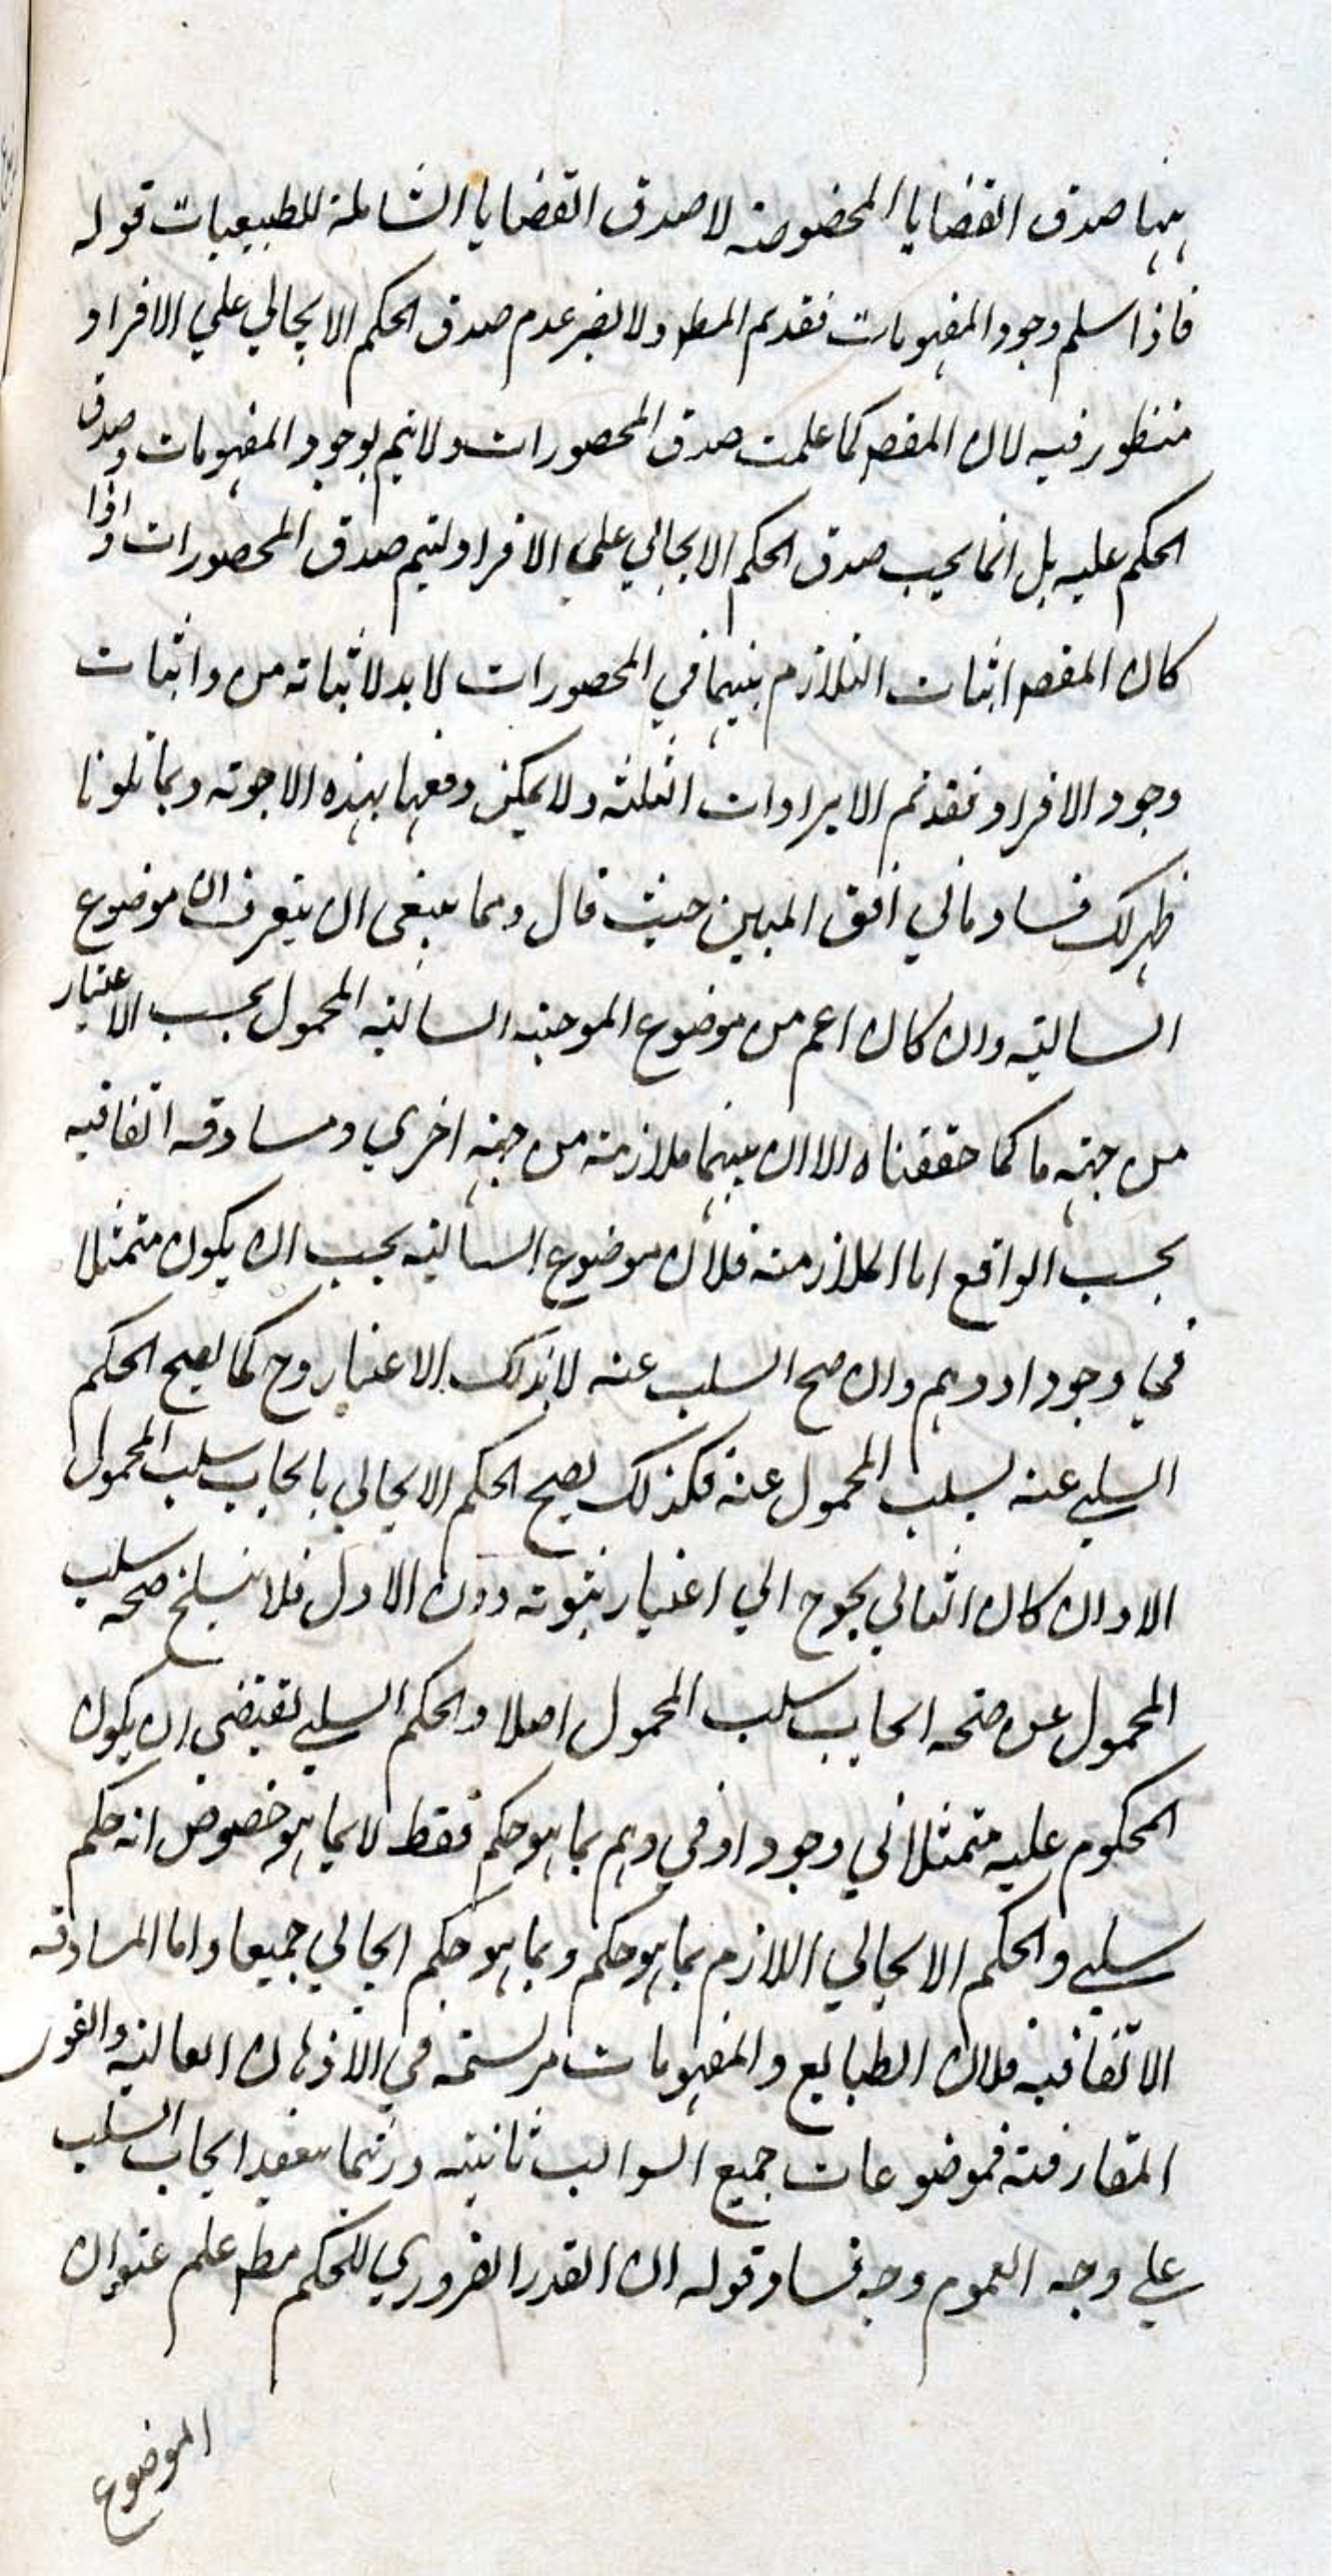 ههنا صدق القضايا المخصوصة لا صدق القضايا الشاملة للطبيعيات قوله
فاذا سلم وجود المفهومات فقد تم المط ولا يضر عدم صدق الحكم الايجابي علي الافراد
منظور فيه لان المقص كما علمت صدق المحصورات ولا يتم بوجود المفهومات وصدق
الحكم عليه بل انما يجب صدق الحكم الايجابي علي الافراد ليتم صدق المحصورات واذا
كان المقص اثبات التلازم بينهما في المحصورات لا بد لاثباته من واثبات
وجود الافراد فقد تم الايرادات الثلثة ولا يمكن دفعها بهذه الاجوبة وبما تلونا
ظهر لك فساد ما في افق المبين حيث قال ومما ينبغي ان يتعرف ان موضوع
السالبة وان كان اعم من موضوع الموجبة السالبة المحمول بحسب الاعتبار
من جهة ما كما حققناه الا ان بينهما ملازمة من جهة اخري ومساوقة اتفاقيه
بحسب الواقع اما الملازمة فلان موضوع السالبة يجب ان يكون متمثلا
في وجود او وهم وان صح السلب عنه لا بذلك الاعتبار وح كما يصح الحكم
السلبي عنه بسلب المحمول عنه فكذلك يصح الحكم الايجابي بايجاب سلب المحمول
الا وان كان الثاني يحوج الي اعتبار ثبوته دون الاول فلا ينسلخ صحه سلب
المحمول عن صحه ايجاب سلب المحمول اصلا والحكم السلبي يقتضي ان يكون
المحكوم عليه متمثلا في وجود او في وهم بما هو حكم فقط لا بما هو خصوص انه حكم
سلبي والحكم الايجابي اللازم بما هو حكم وبما هو حكم ايجابي جميعا واما المساوقه
الاتفاقيه فلان الطبايع والمفهومات مرتسمه في الاذهان العاليه والقور
المفارقة فموضوعات جميع السوالب ثابتة وربما ينعقد ايجاب السلب
علي وجه العموم وجه فساد قوله ان القدر الضروري للحكم مط علم عنوان
الموضوع